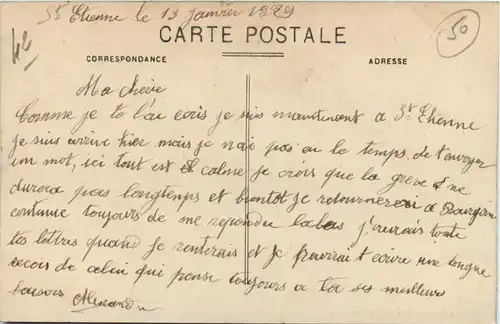 St Etienne le 13 janvier 1929
CARTE POSTALE
42
50
CORRESPONDANCE
ADRESSE
Ma chérie
Comme je te l'ai ecris je suis maintenent a St Ethenne
je suis arrivé hier mais je n'ai pas eu le temps de t'envoyer
un mot, ici tout est calme je crois que la greve ne
durera pas longtenps et bientot je retournerai a Bourgoin
continue toujours de me repondre labas j'aurais toute
tes lettres quand je rentrerais et je pourrait t'ecrire une longue
recois de celui qui pense toujours a toi ses meilleurs
baisers Alexandre